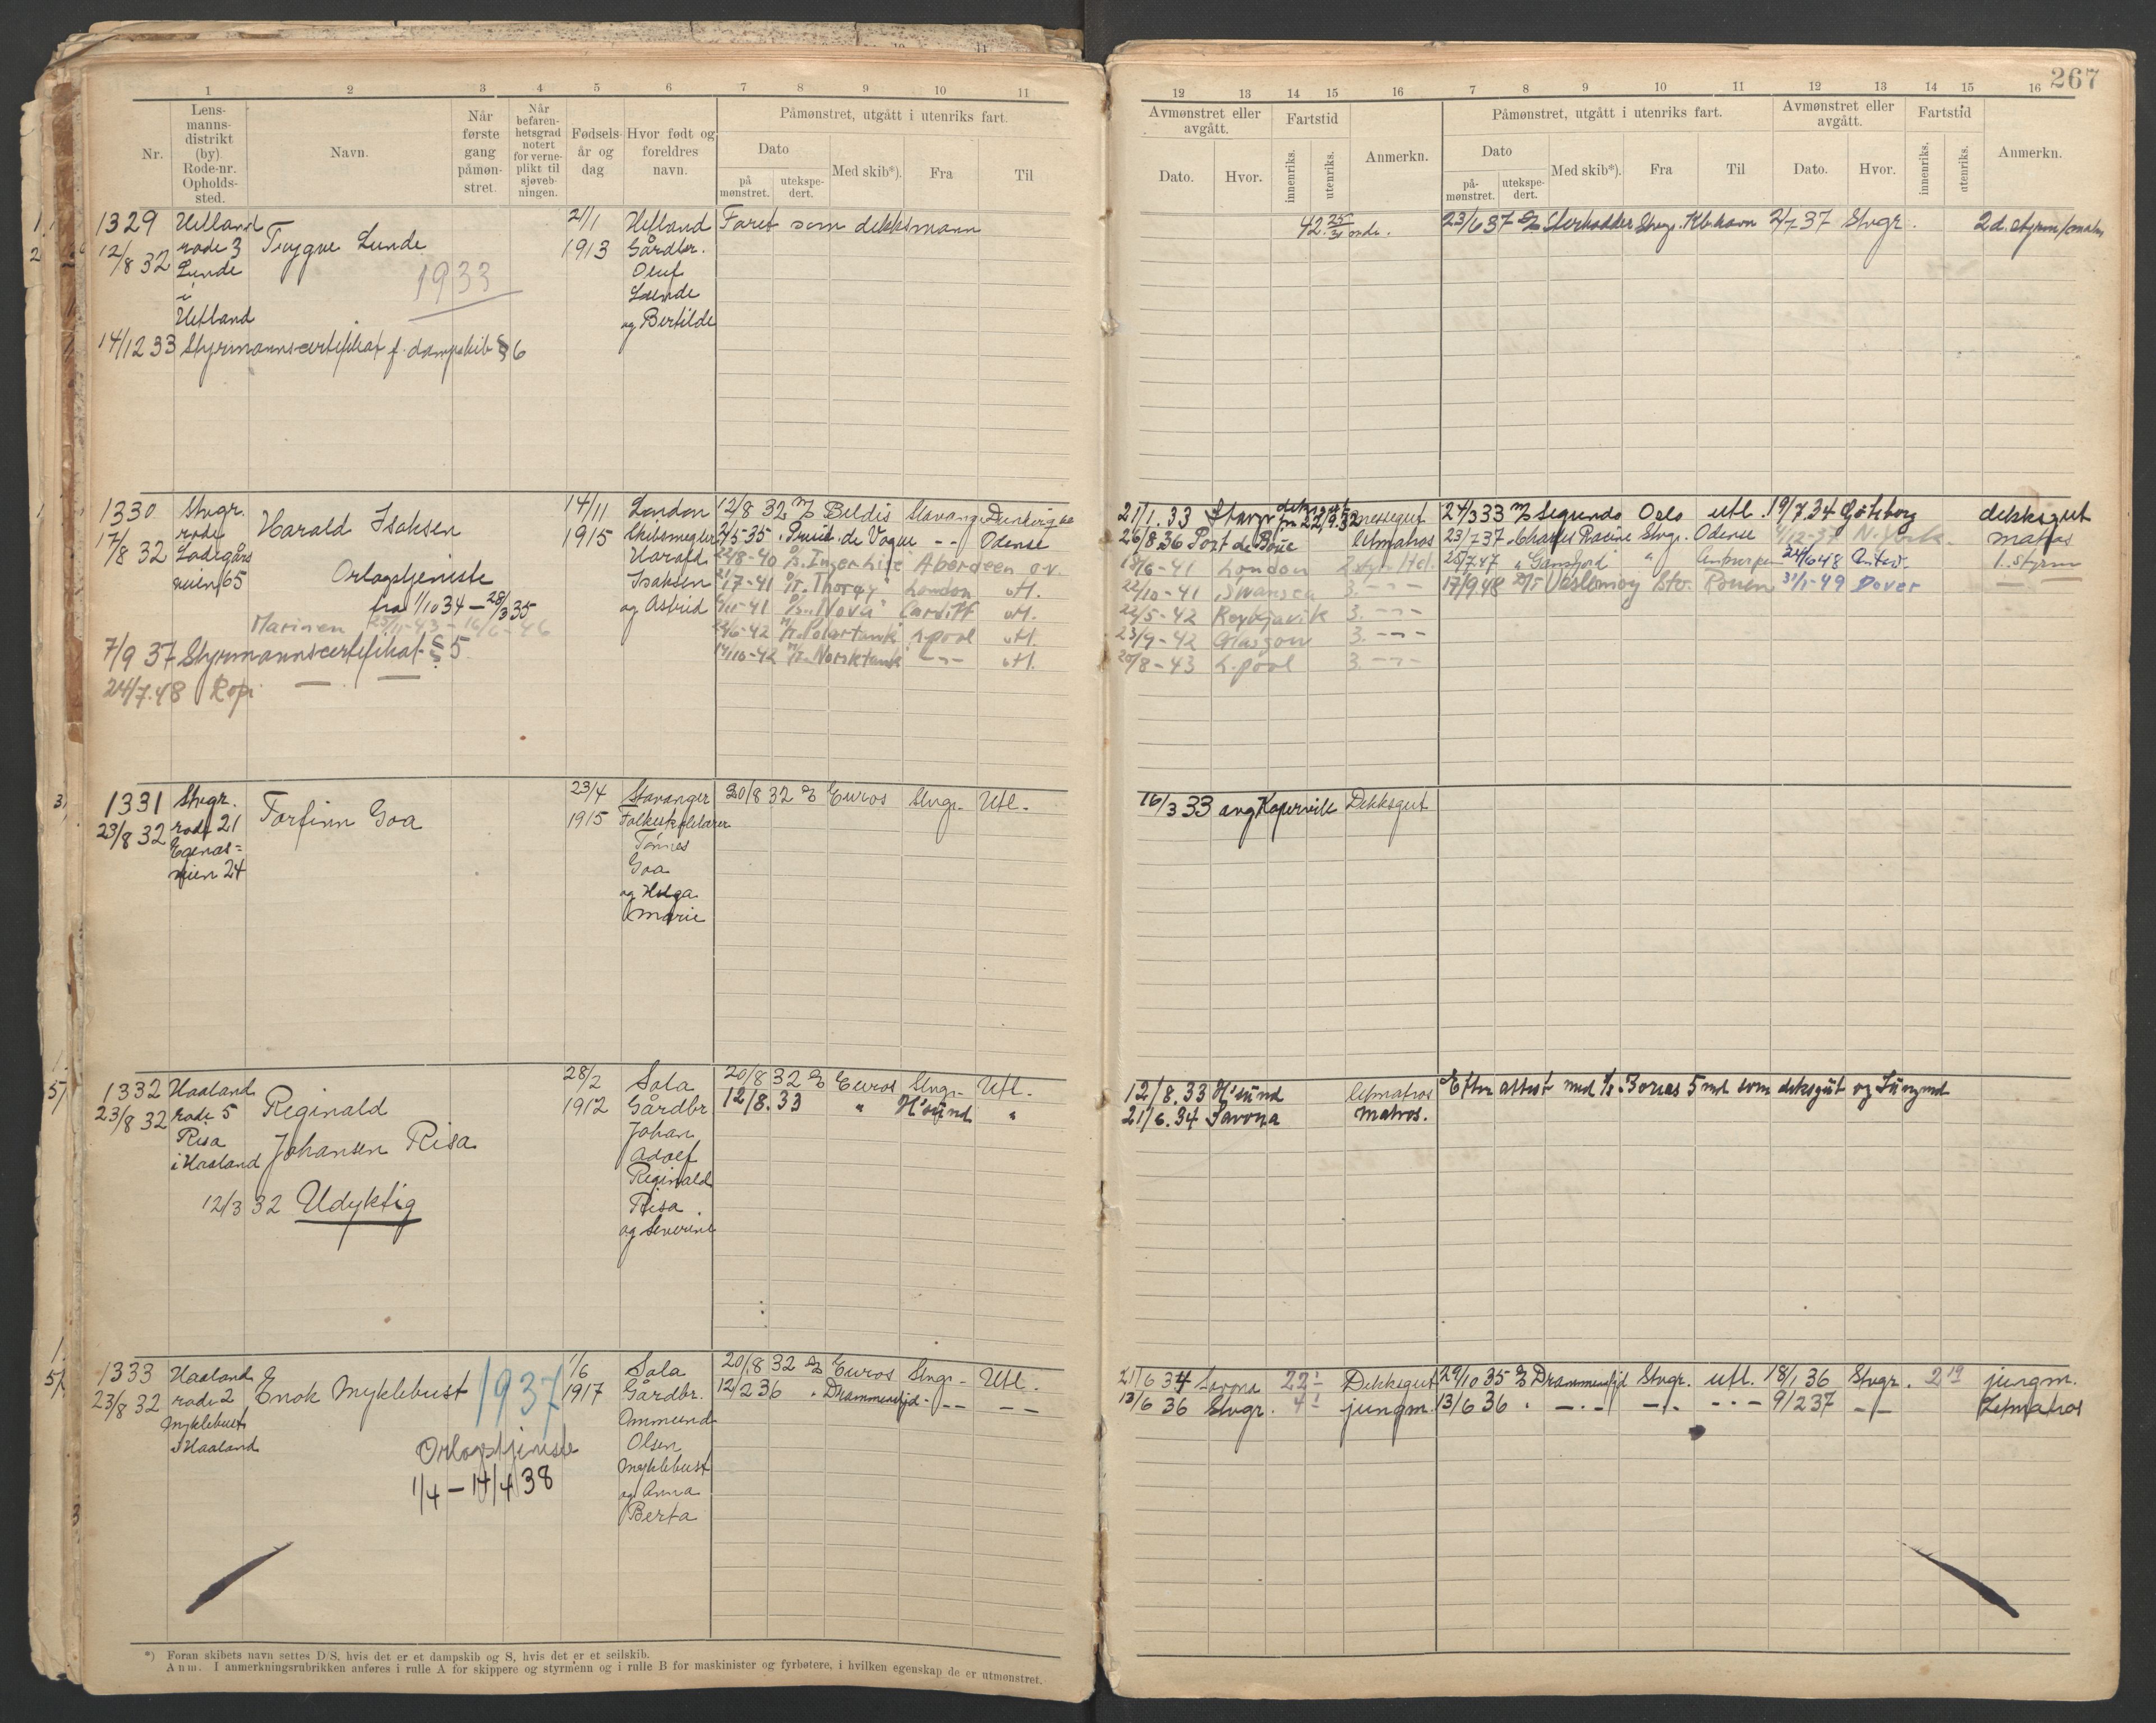 267
1 2 3 4 5 6 7 8 9 10 11
Nr.
Lens-
manns-
distrikt
(by)
Rode-nr.
Opholds-
sted.
Navn.
Når
første
gang
påmøn-
stret.
Når
befaren-
hetsgrad
notert
for verne-
plikt til
sjøveb-
ningen.
Fødsels-
år og
dag
Hvor født og
foreldres
navn.
Påmønstret, utgått i utenriks fart.
Dato
på
mønstret.
utekspe-
dert.
Med skib*).
Fra
Til
12 13 14 15 16 7 8 9 10 11 12 13 14 15 16
Avmønstret eller
avgått.
Dato.
Hvor.
Fartstid
innenriks.
utenriks.
Anmerkn.
Påmønstret, utgått i utenriks fart.
Dato
på-
mønstret.
utekspe-
dert.
Med skib*).
Fra
Til
Avmønstret eller
avgått.
Dato.
Hvor.
Fartstid
innenriks.
utenriks.
Anmerkn.
1329
12/8 32
Hetland
rode 3
Lunde
i
Hetland
Trygve Lunde
1933
21/1
1913
Hetland
Gårdbr.
Oluf
Lunde
og Bertilde
Faret som dekksmann
14/12 33 Styrmannscertifikat f. dampskib § 6
42 25/31 mdr.
23/6 37 Sterkodder Stvgr. Kbhavn 2/7 37 Stvgr. 2d. styrm/matr
1330
17/8 32
Stvgr.
rode
Ladegårds
veien 65
Harald Isaksen
Orlogstjeniste
fra 1/10 34 - 28/3 35
Marinen 25/11-43 - 16/6-46
7/9 37 Styrmannscertifikat § 5
24/7.48 Kopi — —
14/11
1915
London
Skibsmegler
Harald
Isaksen
og Astrid
12/8 32 Beldis Stavang. Dunkirg
2/5-35 Presid. de Vogue -- Odense
22/8-40 Inger Lise Aberdeen o.v.
21/7-41 Thorøy London utl.
6/11-41 "Nova" Cardiff utl.
22/6-42 Polartank L.pool utl.
14/10-42 Norsktank -"- utl.
21/1.33 Stavgr. 22/9.32 messegut
26/8 36 Port de Bouc letmatros
13/6-41 London 2 styrm
22/10-41 Swansea 3. -"-
22/5-42 Reykjavik 3. -"-
23/9-42 Glasgow 3. -"-
20/8-43 L.pool 3. -"-
24/3 33 Segundo Oslo utl. 19/7.34 Göteborg dekksgut
23/2 37 Charles Racine Stvgr. Odense 4/12-37 N. York. matros
25/7.47 Gansfjord " Antwerpen 24/6 48 Antw. 1. styrm
17/9.48 Veslemøy Sto. Rouen 31/1-49 Dover — —
1331
23/8 32
Stvgr.
rode 21
Egenæs=
veien 24
Torfinn Goa
23/4
1915
Stavanger
Folkeskolelærer
Tønnes
Goa
og Helga
Marie
20/8 32 Euros Stvgr. Utl.
16/3 33 ang Kopervik Dekksgut
1332
23/8 32
Haaland
rode 5
Risa
i Haaland
Reginald
Johansen Risa
12/3 32 Udyktig
28/2
1912
Sola
Gårdbr
Johan
Adolf
Reginald
Risa
og Severine
20/8 32 Euros Stvgr. Utl.
12/8.33 " H'sund "
12/8.33 H'sund letmatros
21/6.34 Savona Matros.
Efter attest med 5 md som deksgut og Jungmd
1333
23/8 32
Haaland
rode 2
Myklebust
i Haaland
Enok Myklebust
1937
Orlogstjeniste
1/4 - 14/4 38
1/6
1917
Sola
Gårdbr.
Ommund
Olsen
Myklebust
og Anna
Berta
20/8 32 Euros Stvgr. Utl.
12/2 36 Drammensfjd. -- --
21/6 34 Savona 22 1 Dekksgut
13/6 36 Stvgr. 4 1 jungm.
29/10 35 Drammensfjd Stvgr. utl. 18/1 36 Stvgr. 2 19 jungm.
13/6 36 -"- -"- -"- 9/2 37 -"- Letmatros
*) Foran skibets navn settes D/S, hvis det er et dampskib og S, hvis det er et seilskib.
Anm. I anmerkningsrubrikken anføres i rulle A for skippere og styrmenn og i rulle B for maskinister og fyrbøtere, i hvilken egenskap de er utmønstret.